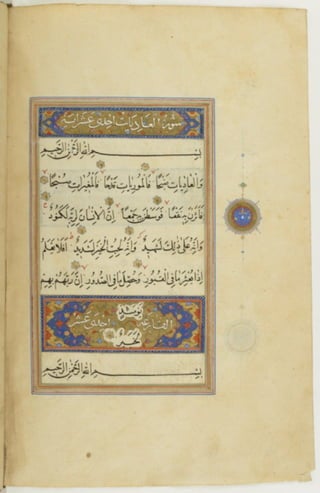 سورة العاديات احدى عشر اية
بسم الله الرحمن الرحيم
وَالْعَادِيَاتِ ضَبْحًا فَالْمُورِيَاتِ قَدْحًا فَالْمُغِيرَاتِ صُبْحًا
فَأَثَرْنَ بِهِ نَقْعًا فَوَسَطْنَ بِهِ جَمْعًا إِنَّ الْإِنْسَانَ لِرَبِّهِ لَكَنُودٌ
وَإِنَّهُ عَلَى ذَلِكَ لَشَهِيدٌ وَإِنَّهُ لِحُبِّ الْخَيْرِ لَشَدِيدٌ أَفَلَا يَعْلَمُ
إِذَا بُعْثِرَ مَا فِي الْقُبُورِ وَحُصِّلَ مَا فِي الصُّدُورِ إِنَّ رَبَّهُمْ بِهِمْ
يَوْمَئِذٍ
القارعة احدى عشر
لَخَبِيرٌ
بسم الله الرحمن الرحيم